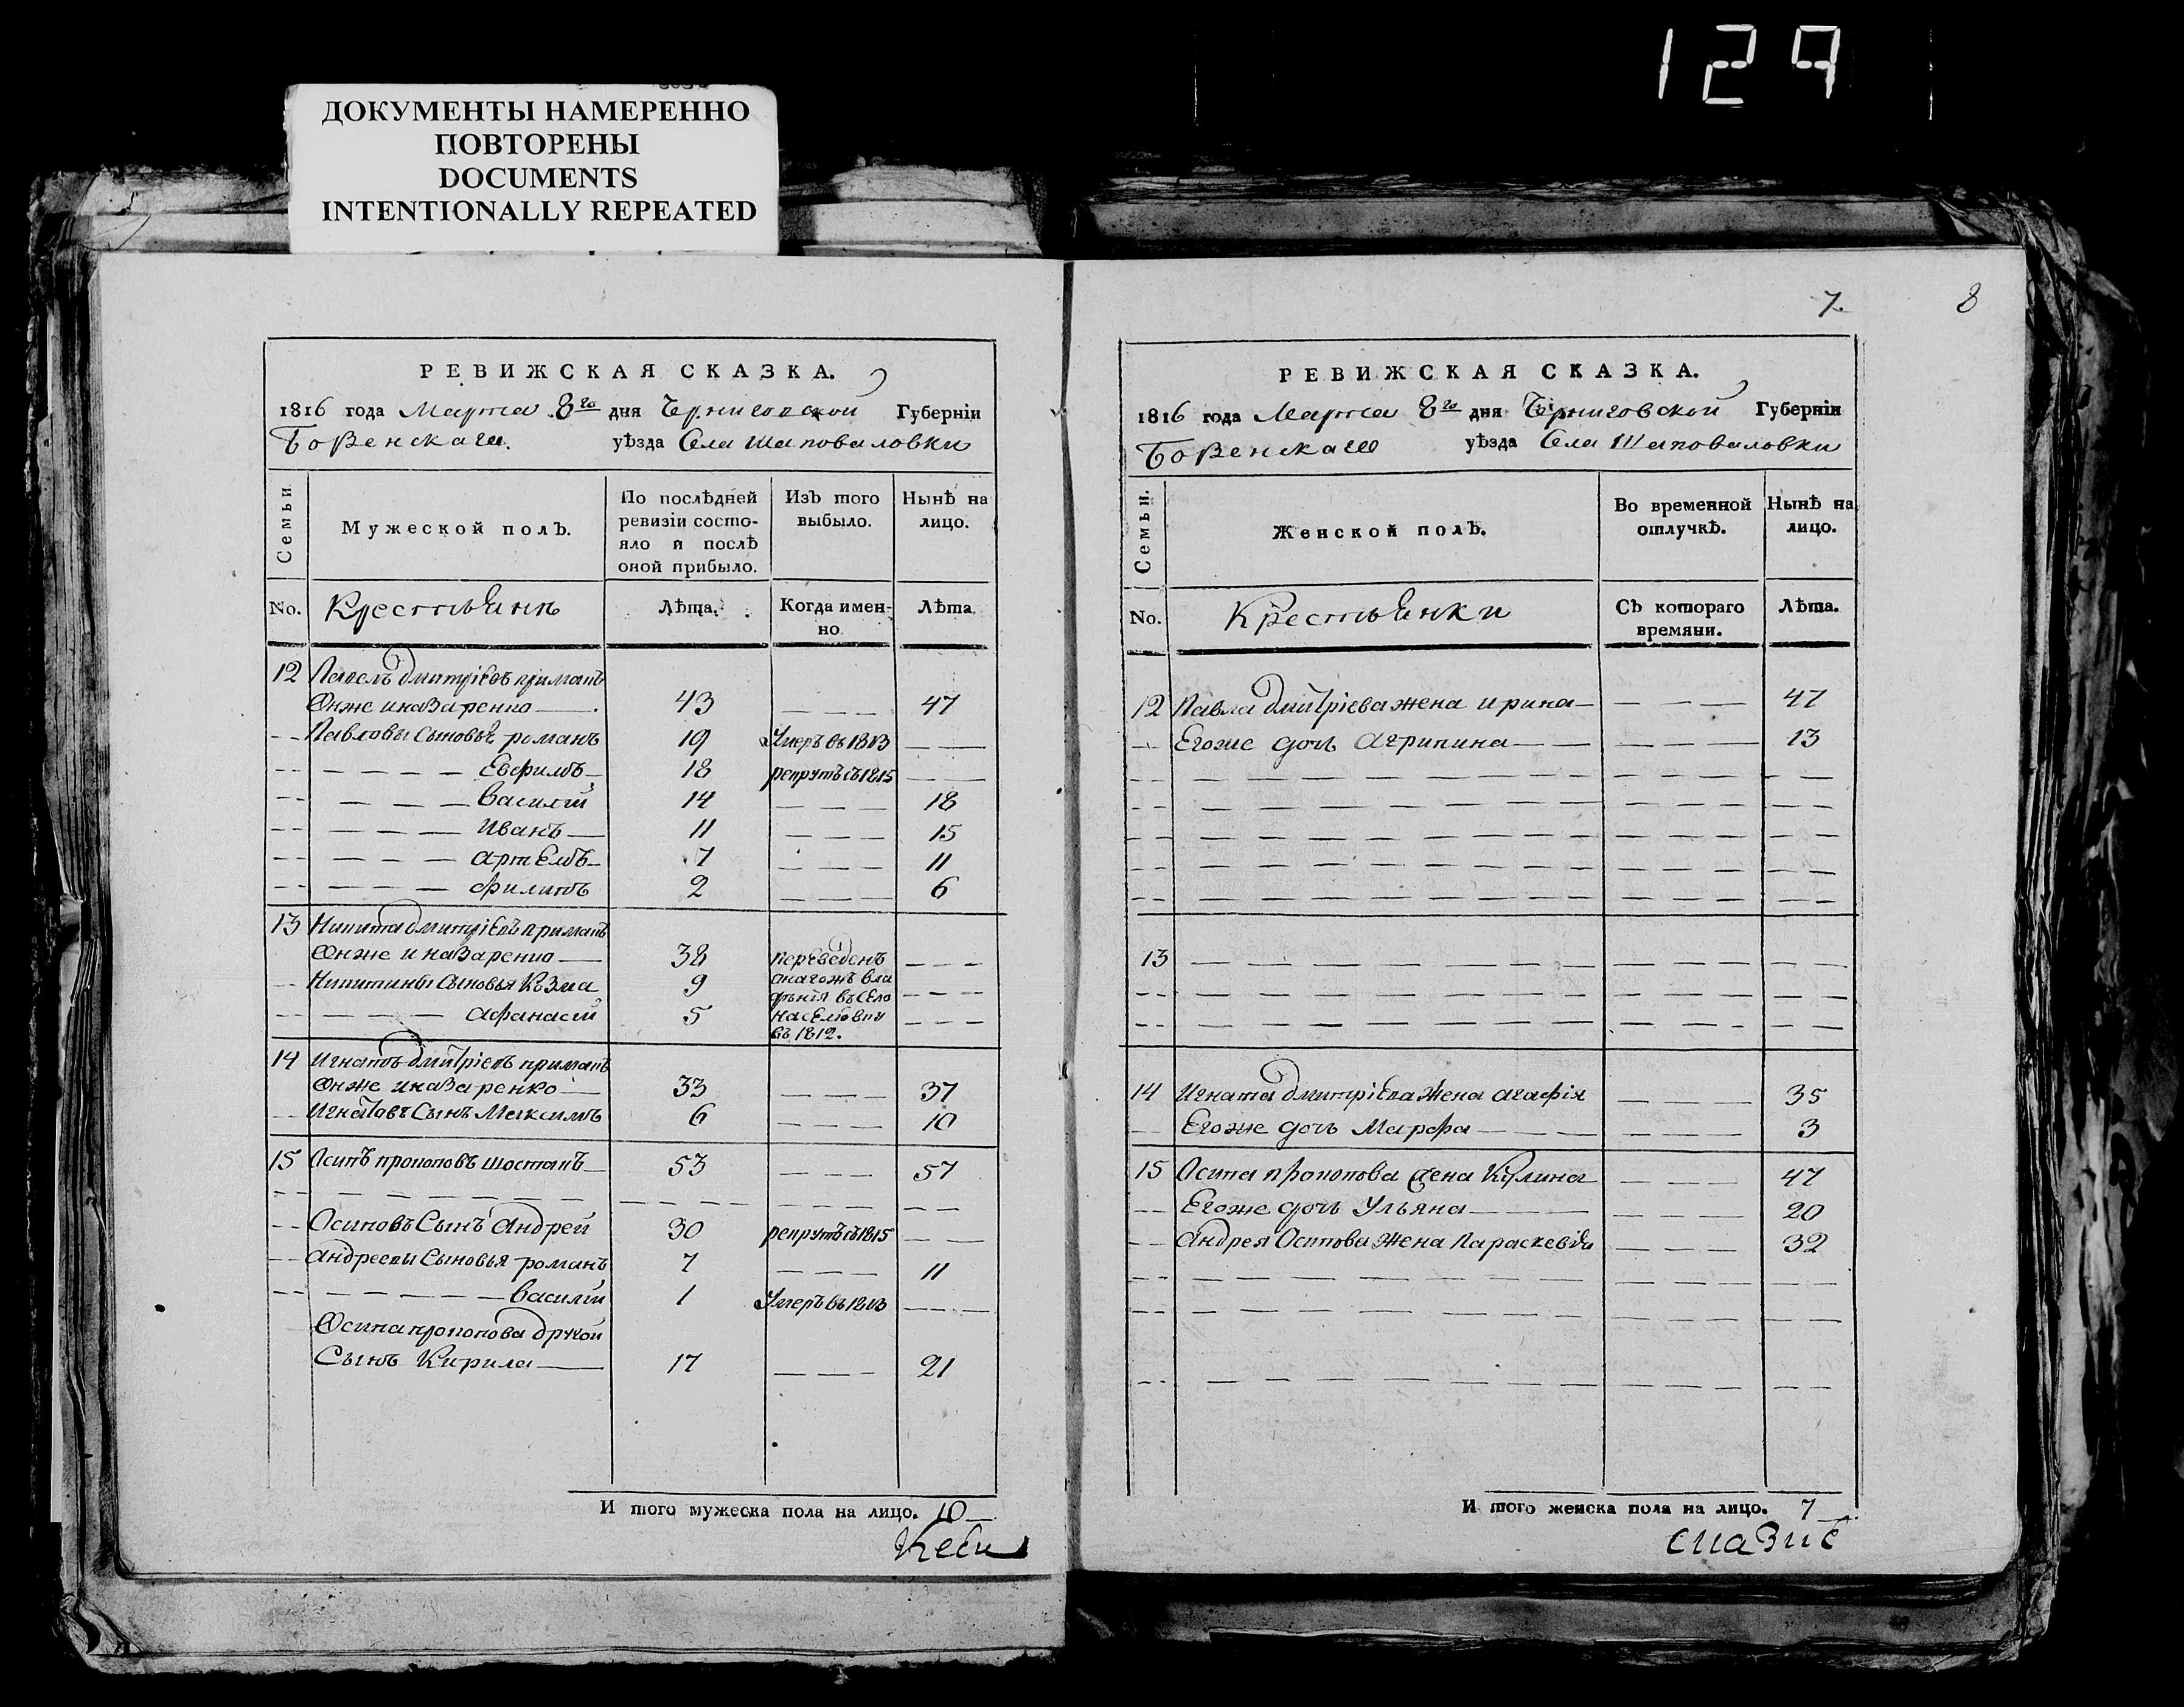 129
ДОКУМЕНТЫ НАМЕРЕННО
ПОВТОРЕНЫ
DOCUMENTS
INTENTIONALLY REPEATED
РЕВИЖСКАЯ СКАЗКА.
1816 года Марта 8го дня Черниговской Губерніи
Борзенскаго уѣзда Села Шаповаловки
Семьи
Мужеской полъ.
По послѣдней ревизіи состояло и послѣ оной прибыло.
Изъ того выбыло.
Нынѣ на лицо.
No. Крестьяни Лѣта. Когда именно Лѣта
12 Павелъ Дмитріевъ приманъ
Онже иназаренко 43 47
Павловы Сыновья романъ 19 Умеръ въ 1813
Евфимъ 18 рекрутъ съ 1815
Василій 14 18
Иванъ 11 15
артемъ 7 11
филипъ 2 6
13 Никита Дмитріевъ приманъ
Онже иназаренко 38 переведенъ
Никитины Сыновья Козма 9
афанасій 5
въ 1812.
14 Игнатъ Дмитріевъ приманъ
Онже иназаренко 33 37
Игнатовъ Сынъ Максимъ 6 10
15 Осипъ прокоповъ шостакъ 53 57
Осиповъ Сынъ Андрей 30 рекрутъ съ 1815
андреевы Сыновья романъ 7 11
Василій 1 Умеръ въ 1813
Осипа прокопова другой
Сынъ Кирила 17 21
И того мужеска пола на лицо. 10
7. 8
РЕВИЖСКАЯ СКАЗКА.
1816 года Марта 8го дня Черниговской Губерніи
Борзенскаго уѣзда Села Шаповаловки
Семьи.
Женской полъ.
Во временной отлучкѣ.
Нынѣ на лицо.
No. Крестьянки Съ котораго времяни. Лѣта.
12 Павла Дмитріева жена ирина 47
Егоже дочь Агрипина 13
13
14 Игната Дмитріева жена агафія 35
Егоже дочь Марфа 3
15 Осипа прокопова жена Кулина 47
Егоже дочь Ульяна 20
Андрея Осипова жена Параскевія 32
И того женска пола на лицо. 7